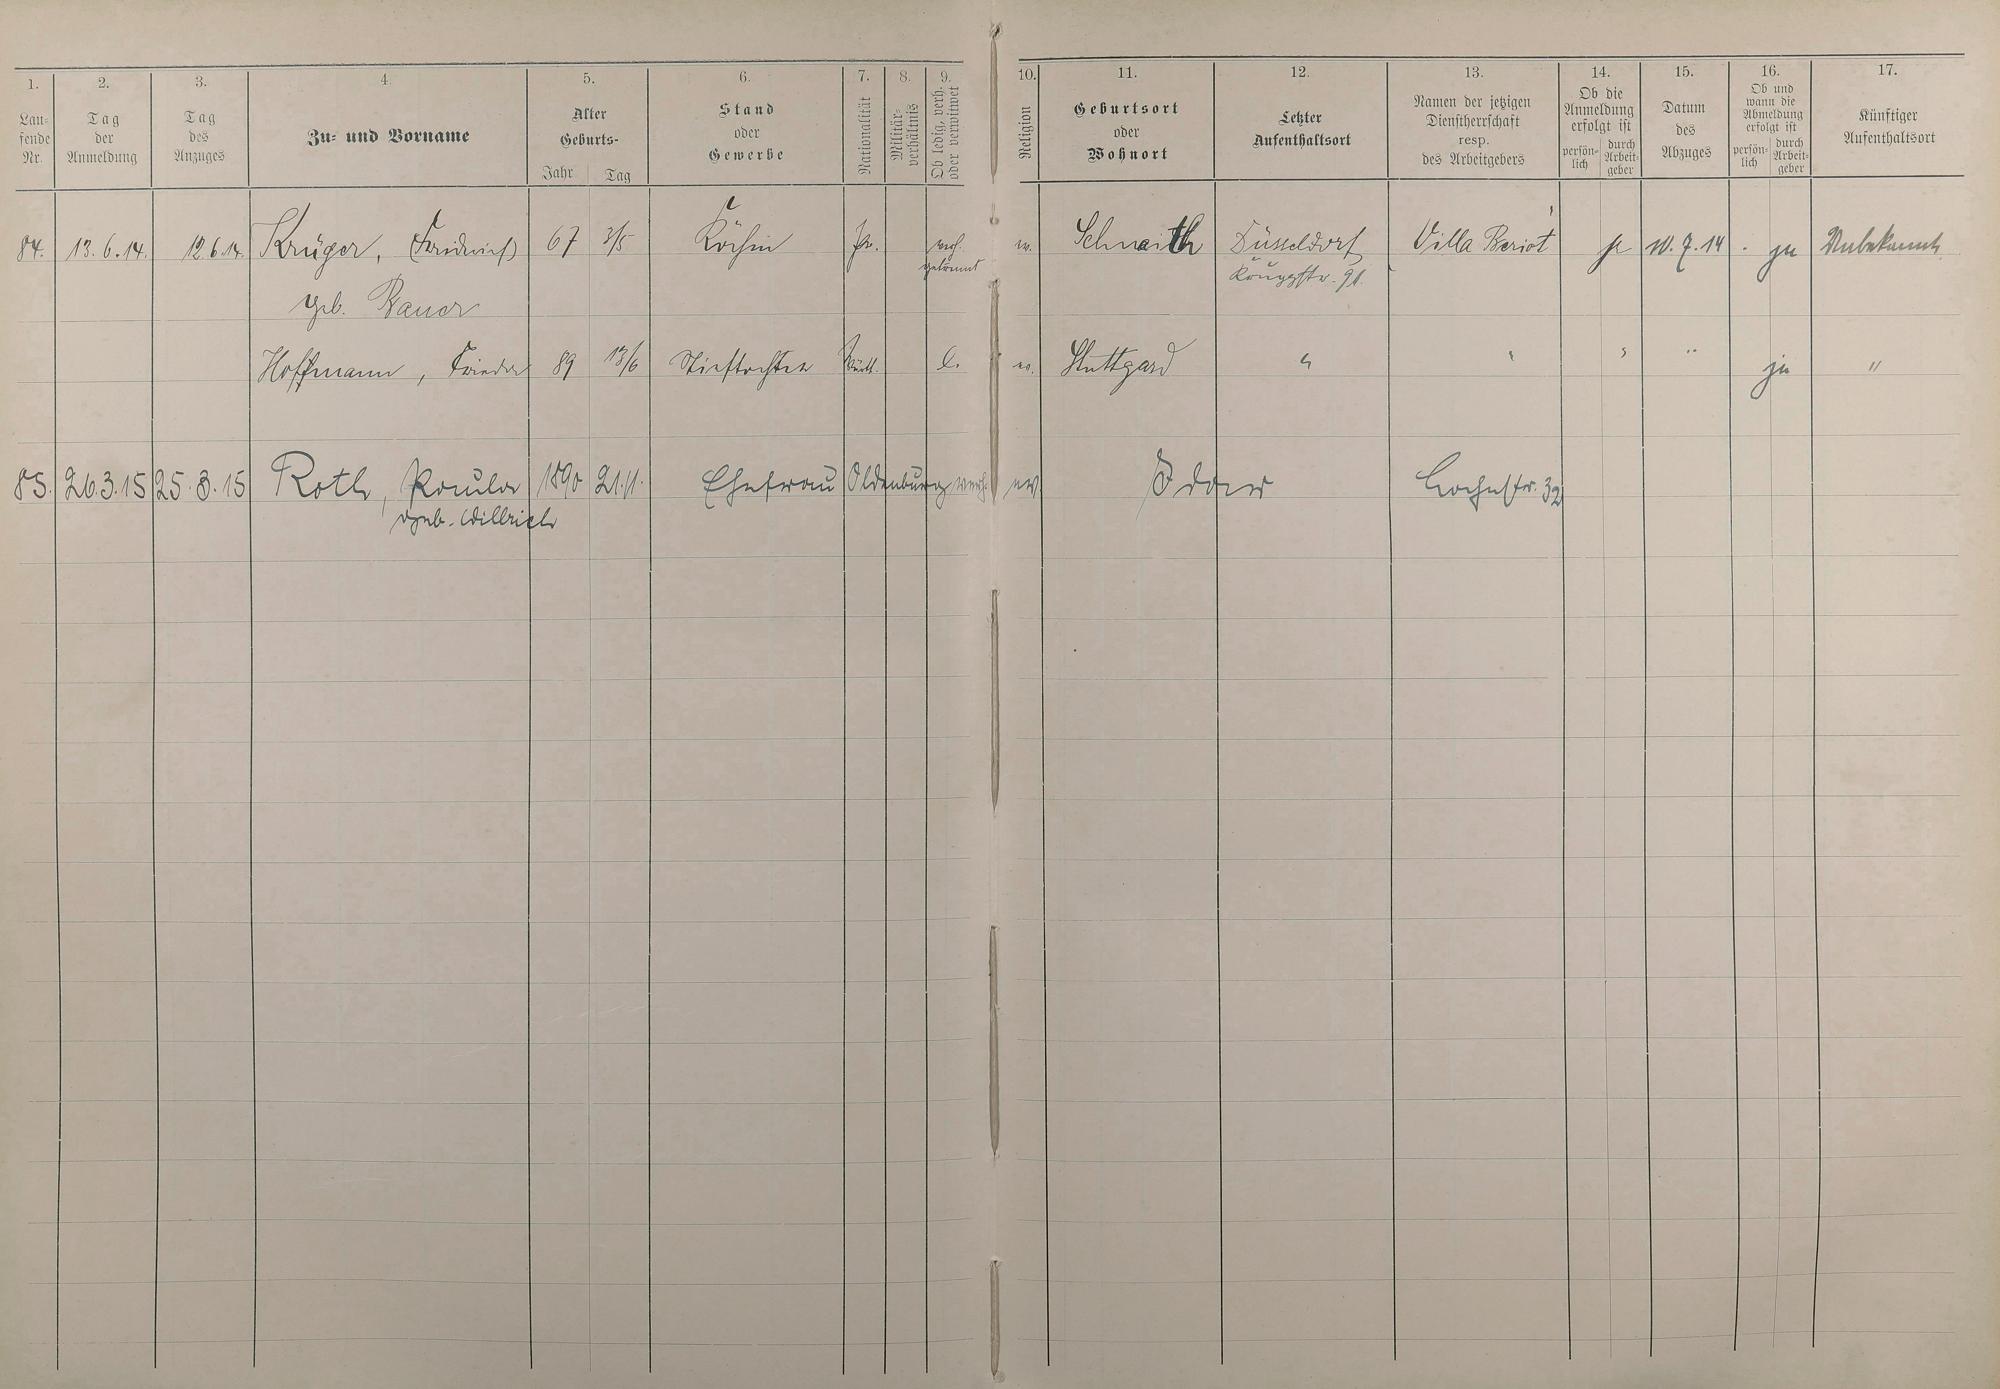 1. 2. 3. 4. 5. 6. 7. 8. 9. 10. 11. 12. 13. 14. 15. 16. 17.
Lau-
fende
Nr.
Tag
der
Anmeldung
Tag
des
Anzuges
Zu- und Vorname
Alter
Geburts-
Jahr Tag
Stand
oder
Gewerbe
Nationalität
Militär-
verhältnis
Ob ledig, verh.
oder verwitwet
Religion
Geburtsort
oder
Wohnort
Letzter
Aufenthaltsort
Namen der jetzigen
Dienstherrschaft
resp.
des Arbeitgebers
Ob die
Anmeldung
erfolgt ist
persön-
lich
durch
Arbeit-
geber
Datum
des
Abzuges
Ob und
wann die
Abmeldung
erfolgt ist
persön-
lich
durch
Arbeit-
geber
Künftiger
Aufenthaltsort
84. 13.6.14. 12.6.14. Krüger, 67 3/5 Köchin Pr. verh. ev. Schnaith Düsseldorf Villa Beriot ja 10.7.14 ja Unbekannt
getrennt
geb. Bauer
Hoffmann, Frieda 89 13/6 Stieftochter Württ. l. ev. Stuttgard " " " " ja "
85. 26.3.15 25.3.15 Roth, Paula 1890 21.11. Ehefrau Oldenburg verh. ev. Hochstr. 32
geb. Willrich